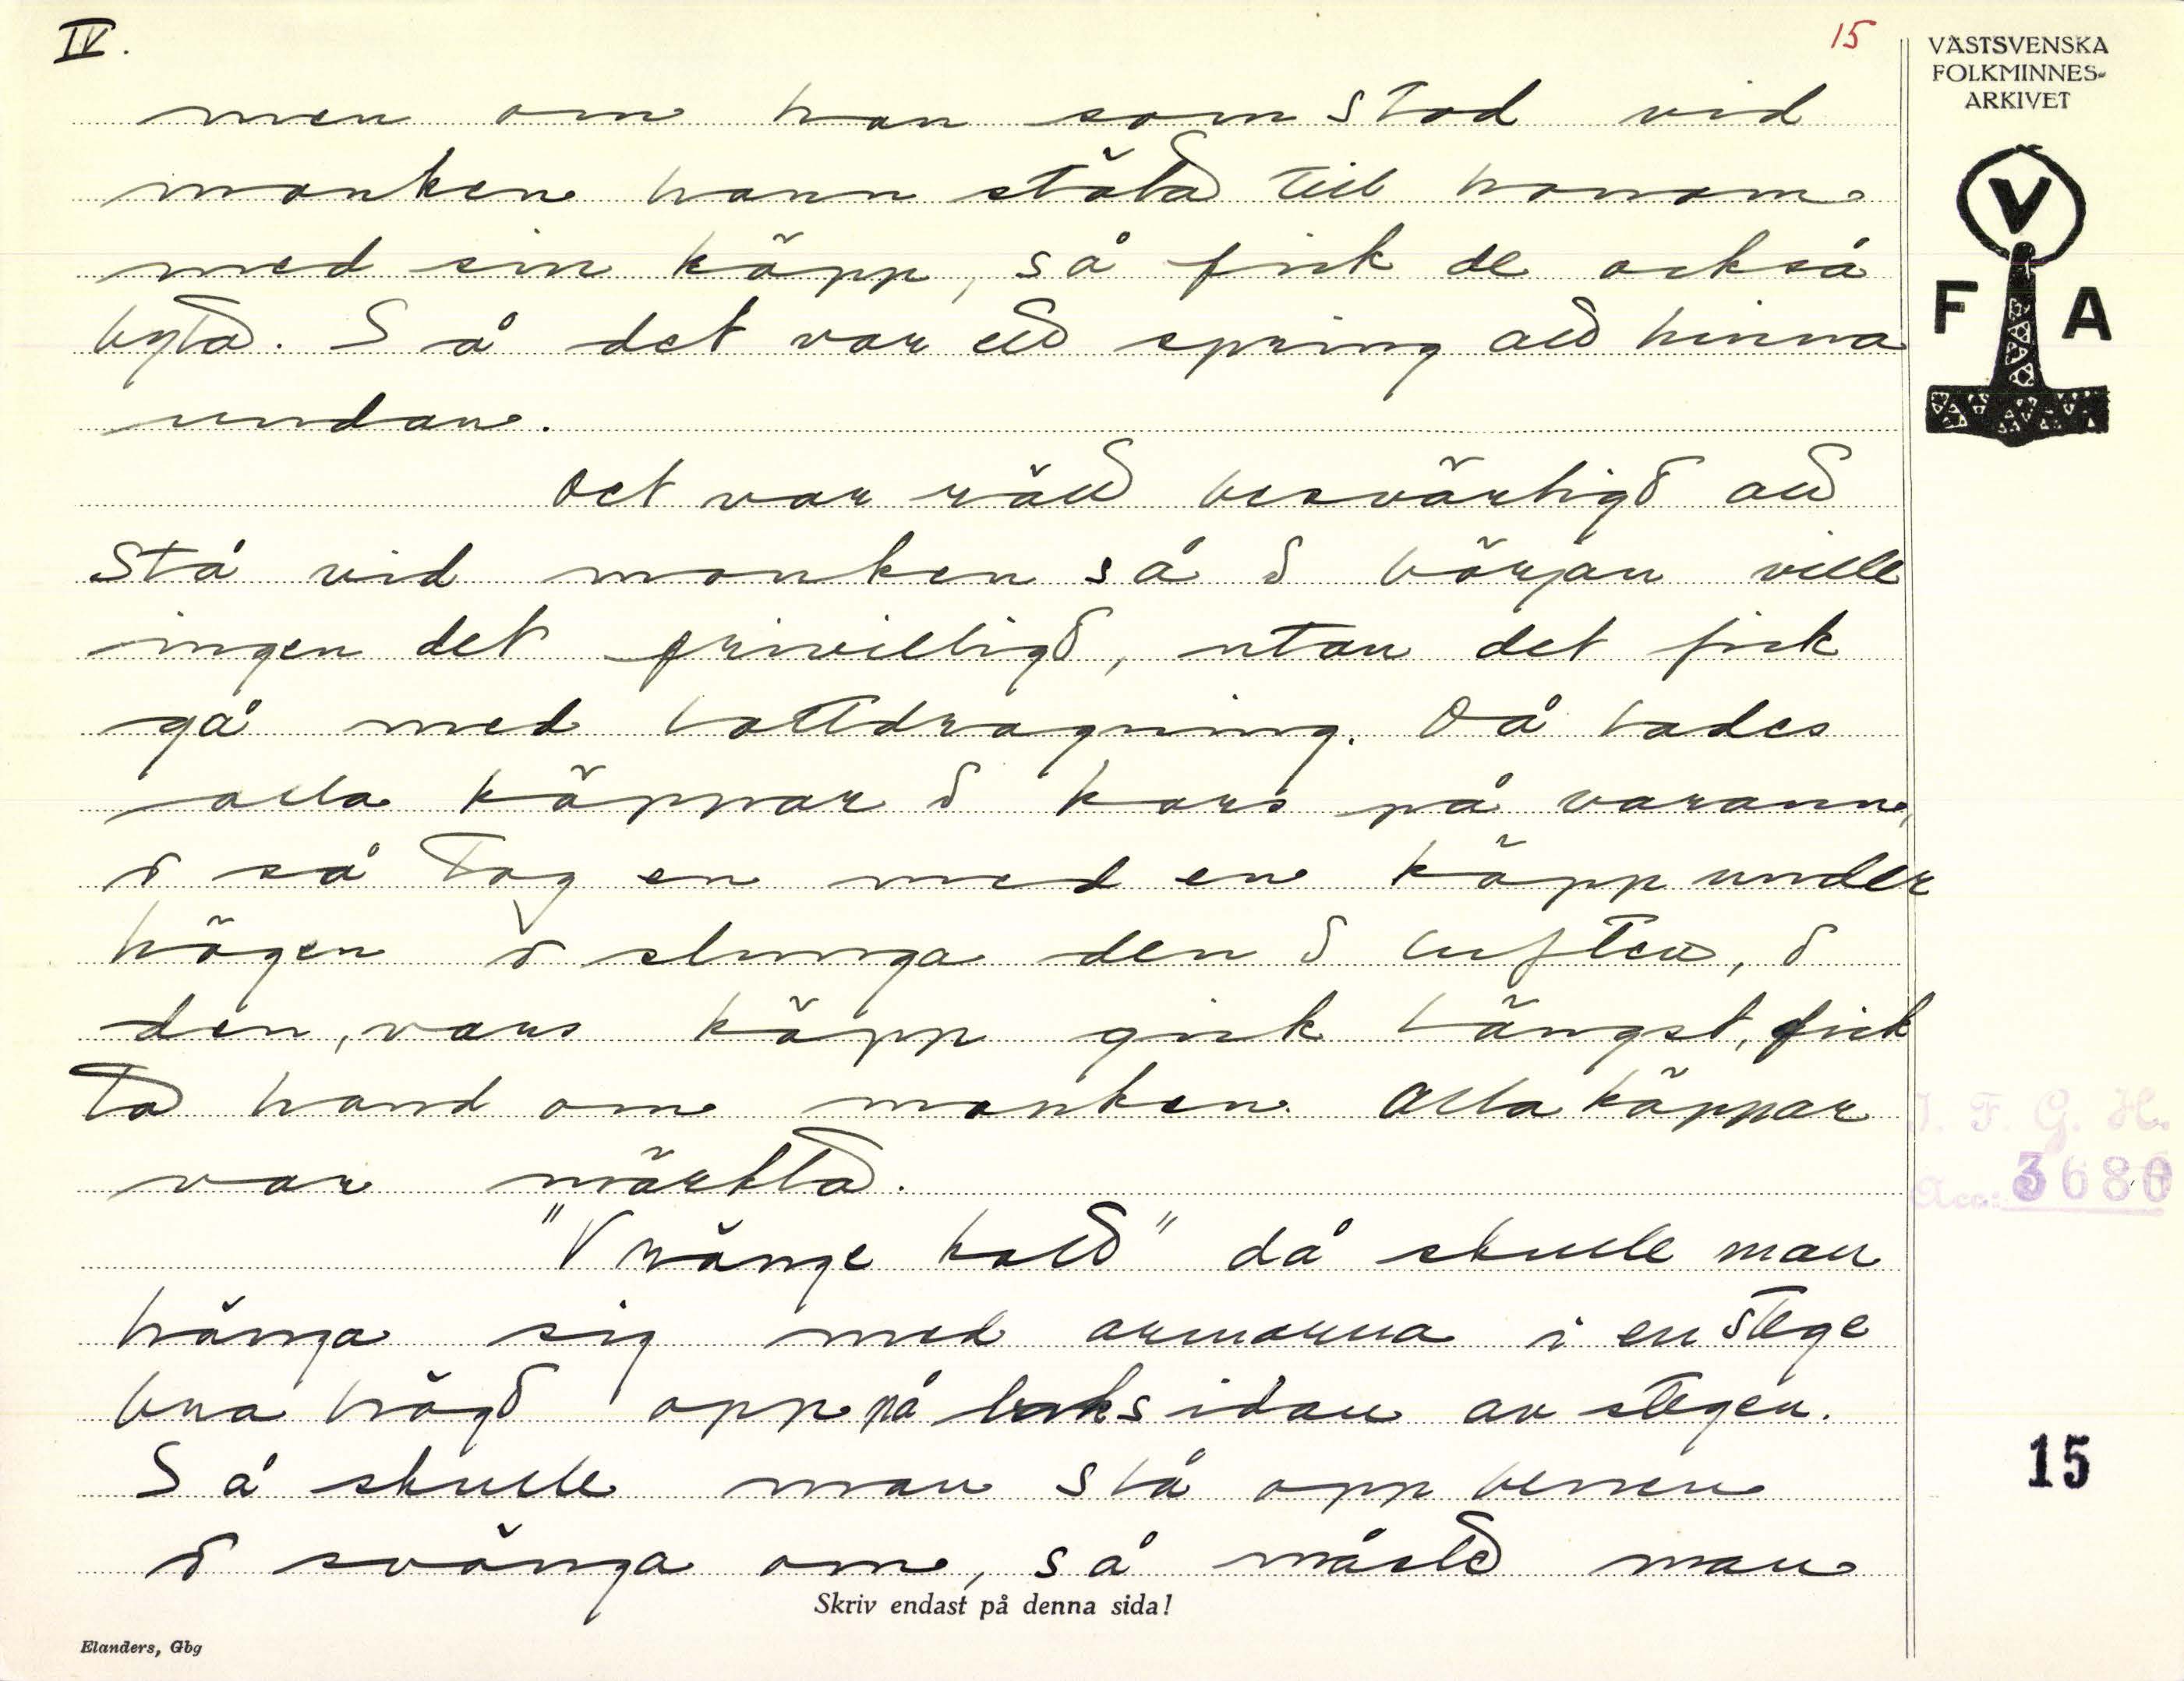 IV.
15
VÄSTSVENSKA
FOLKMINNES-
ARKIVET
V
F A
men om han som stod vid
monken hann stöta till honom
med sin käpp, så fick de också
byta. Så det var ett spring att hinna
undan.
Det var rätt besvärligt att
stå vid monken så i början ville
ingen det frivilligt, utan det fick
gå med lottdragning. Då lades
alla käppar i kors på varann,
o så tog en med en käpp under
högen o slunga den i luften, o
den, vars käpp gick längst, fick
ta hand om monken. Alla käppar
var märkta.
"Vränge katt" då skulle man
hänga sig med armarna i en stege
bra högt opp på baksidan av stegen.
Så skulle man slå opp benen
o svänga om, så måste man
Skriv endast på denna sida!
Elanders, Gbg
I. F. G. H.
Acc: 3680
15